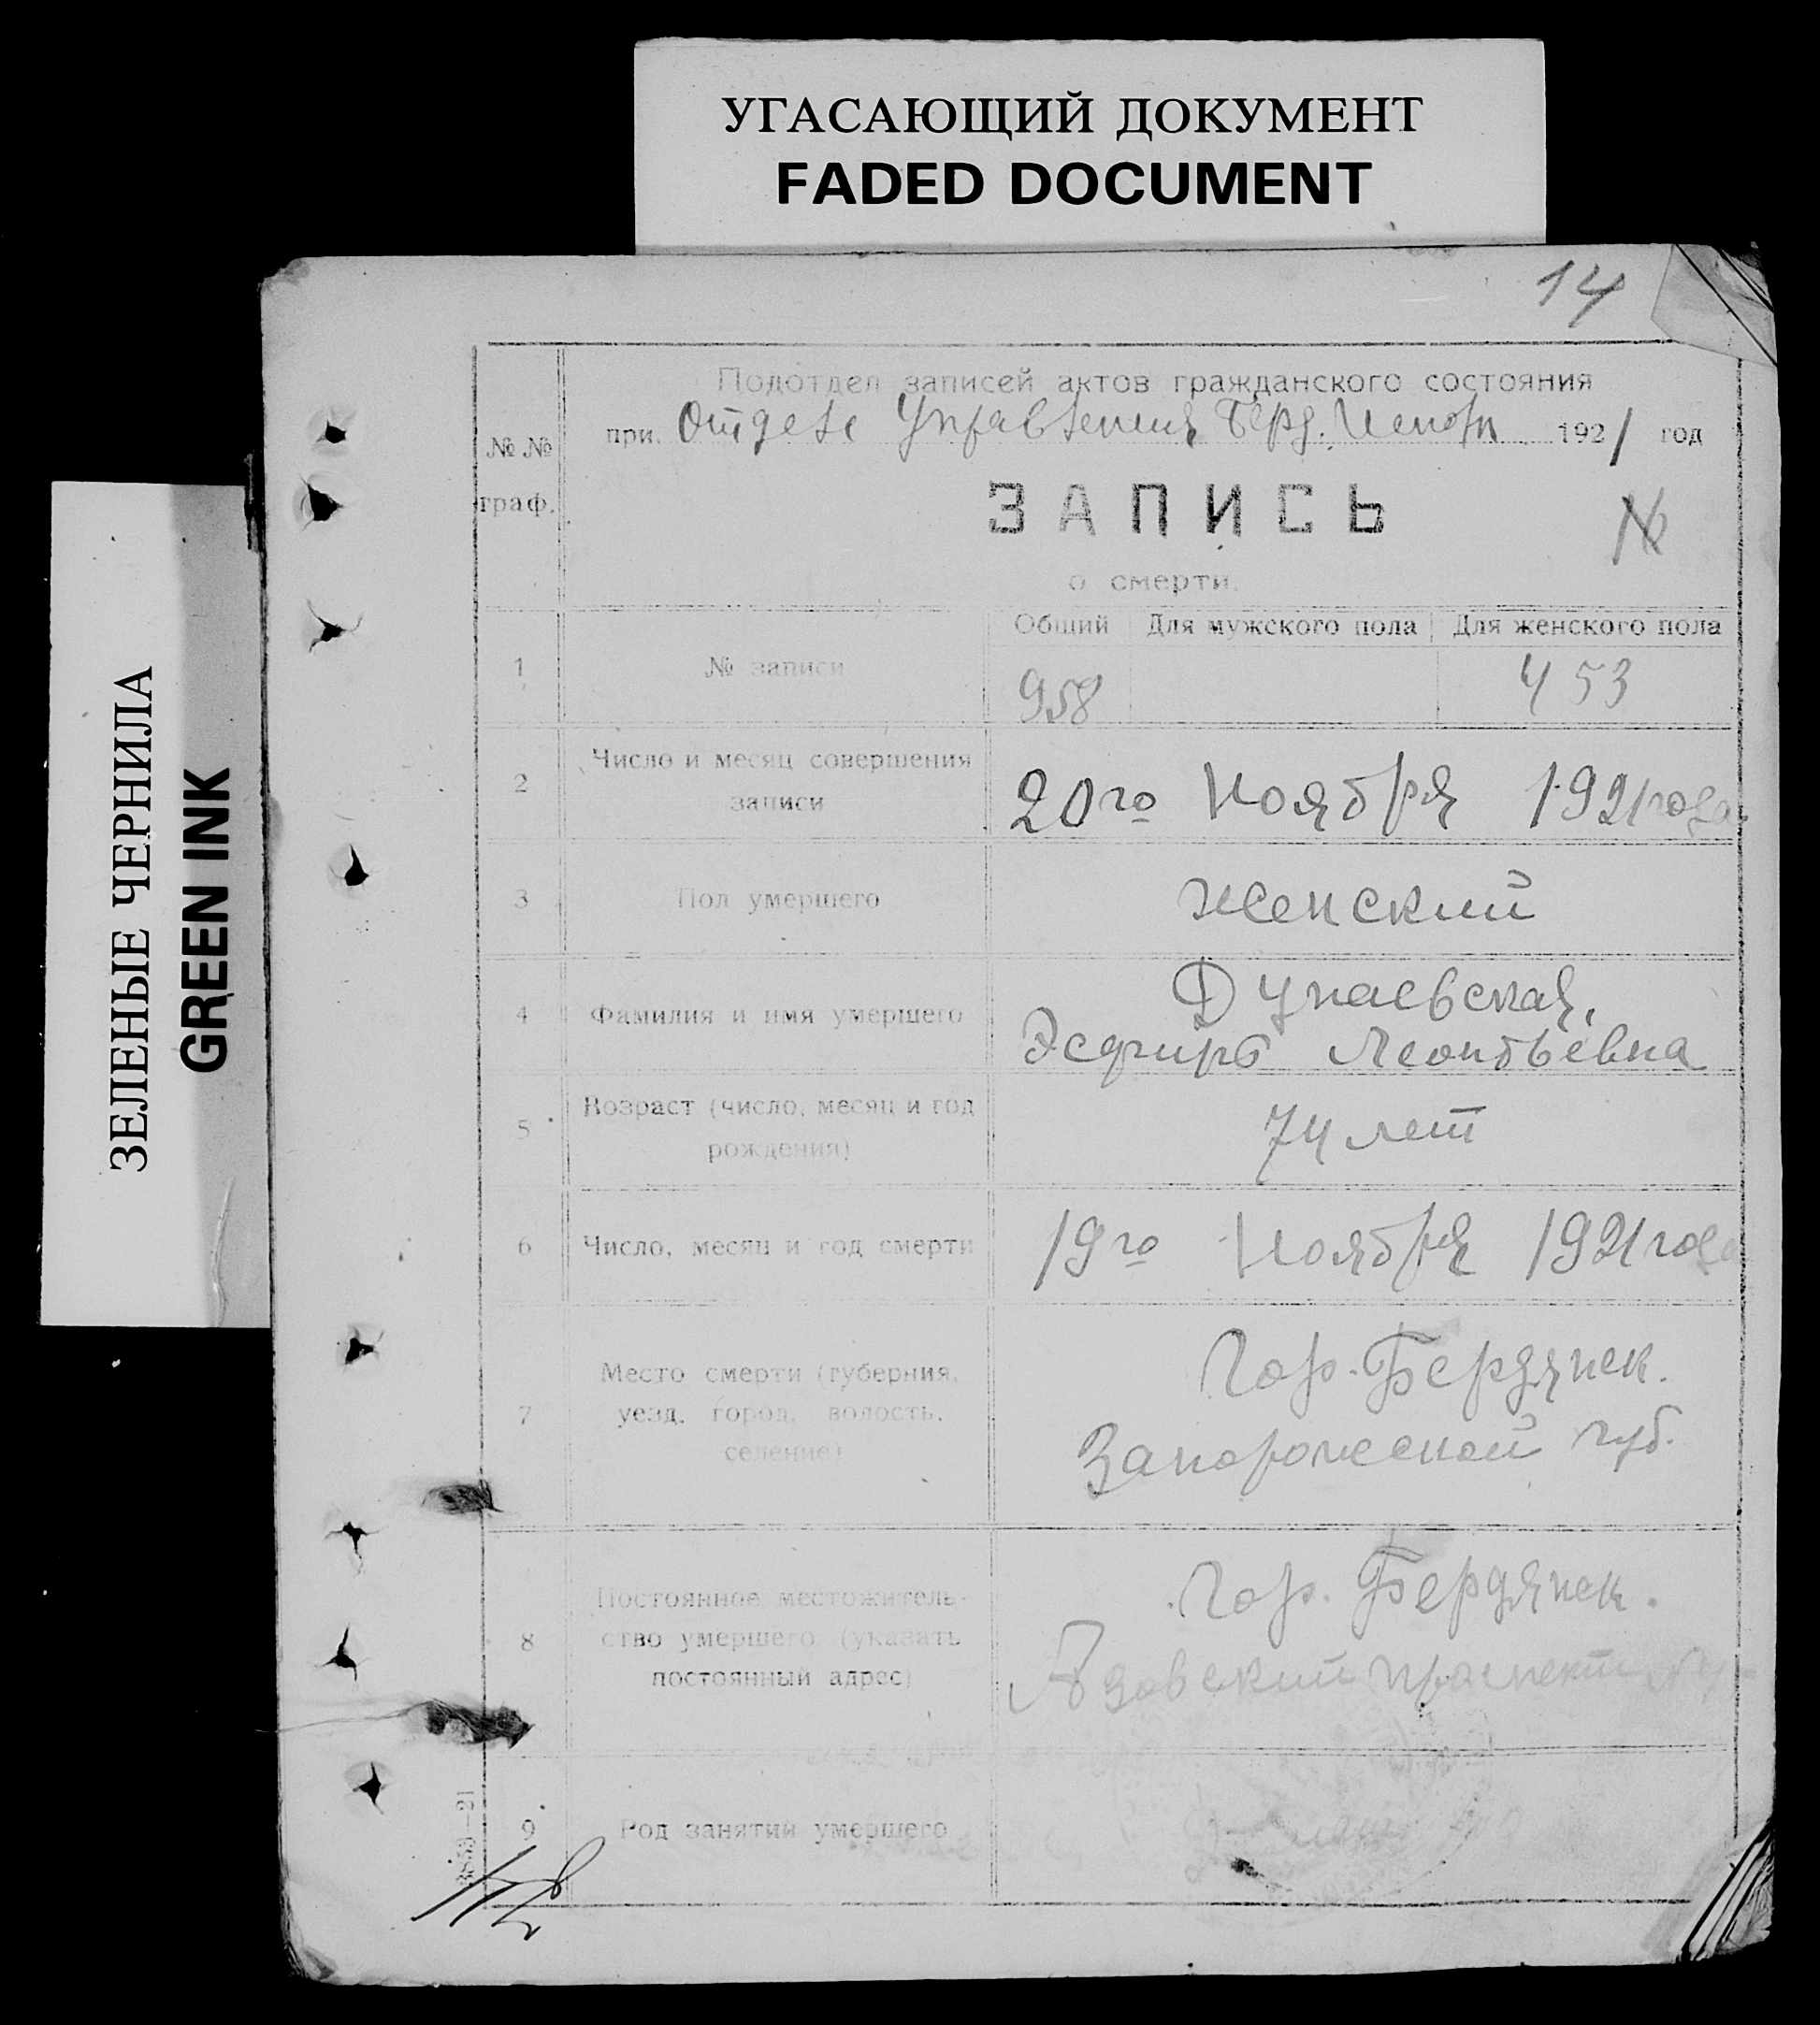 УГАСАЮЩИЙ ДОКУМЕНТ
FADED DOCUMENT
ЗЕЛЕНЫЕ ЧЕРНИЛА
GREEN INK
14
Подотдел записей актов гражданского состояния
№ №
граф.
при Отделе Управления Берд. Исполк 1921 год
ЗАПИСЬ
№
о смерти.
Общий Для мужского пола Для женского пола
1 № записи 958 453
2 Число и месяц совершения
записи
20го Ноября 1921 года
3 Пол умершего Женский
4 Фамилия и имя умершего
Дунаевская,
Эсфирь Леонтьевна
5 Возраст (число, месяц и год
рождения)
74 лет
6 Число, месяц и год смерти 19го Ноября 1921 года
7 Место смерти (губерния,
уезд, город, волость,
селение)
Гор. Бердянск.
Запорожской губ.
8 Постоянное местожитель-
ство умершего (указать
постоянный адрес)
Гор. Бердянск.
Азовский проспект
9 Род занятий умершего
3853—21